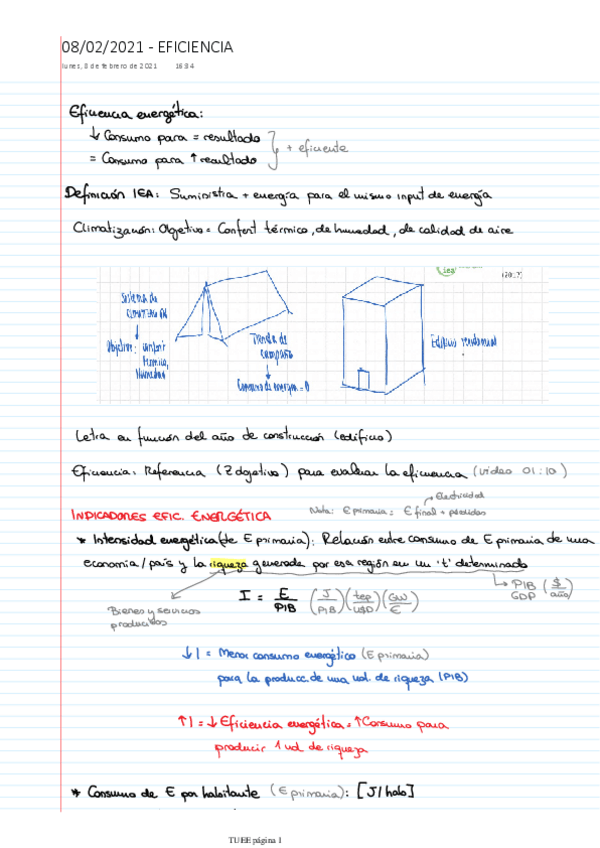 08/02/2021 - EFICIENCIA
lunes, 8 de febrero de 2021 16:34
Eficiencia energética:
↓ Consumo para = resultado
= Consumo para ↑ resultado
+ eficiente
Definición IEA: Suministra + energía para el mismo input de energía
Climatización: Objetivo = Confort térmico, de humedad, de calidad de aire
iea
(2017)
Sistema de
climatización
↓
Objetivo: confort
térmico,
humedad
Tienda de
campaña
↓
Consumo de energía = 0
Edificio residencial
Letra en función del año de construcción (edificio)
Eficiencia: Referencia (2 objetivo) para evaluar la eficiencia (video 01:10)
Electricidad
INDICADORES EFIC. ENERGÉTICA
Nota: E primaria = E final + pérdidas
* Intensidad energética (de E primaria): Relación entre consumo de E primaria de una
economía/país y la riqueza generada por esa región en un 't' determinado
Bienes y servicios
producidos
I = E/PIB (J/PIB) (tep/USD) (GW/€)
PIB
GDP ($/año)
↓I = Menor consumo energético (E primaria)
para la producc. de una ud. de riqueza (PIB)
↑I = ↓Eficiencia energética = ↑Consumo para
producir 1 ud de riqueza
* Consumo de E por habitante (E primaria): [J/hab]
TUEE página 1